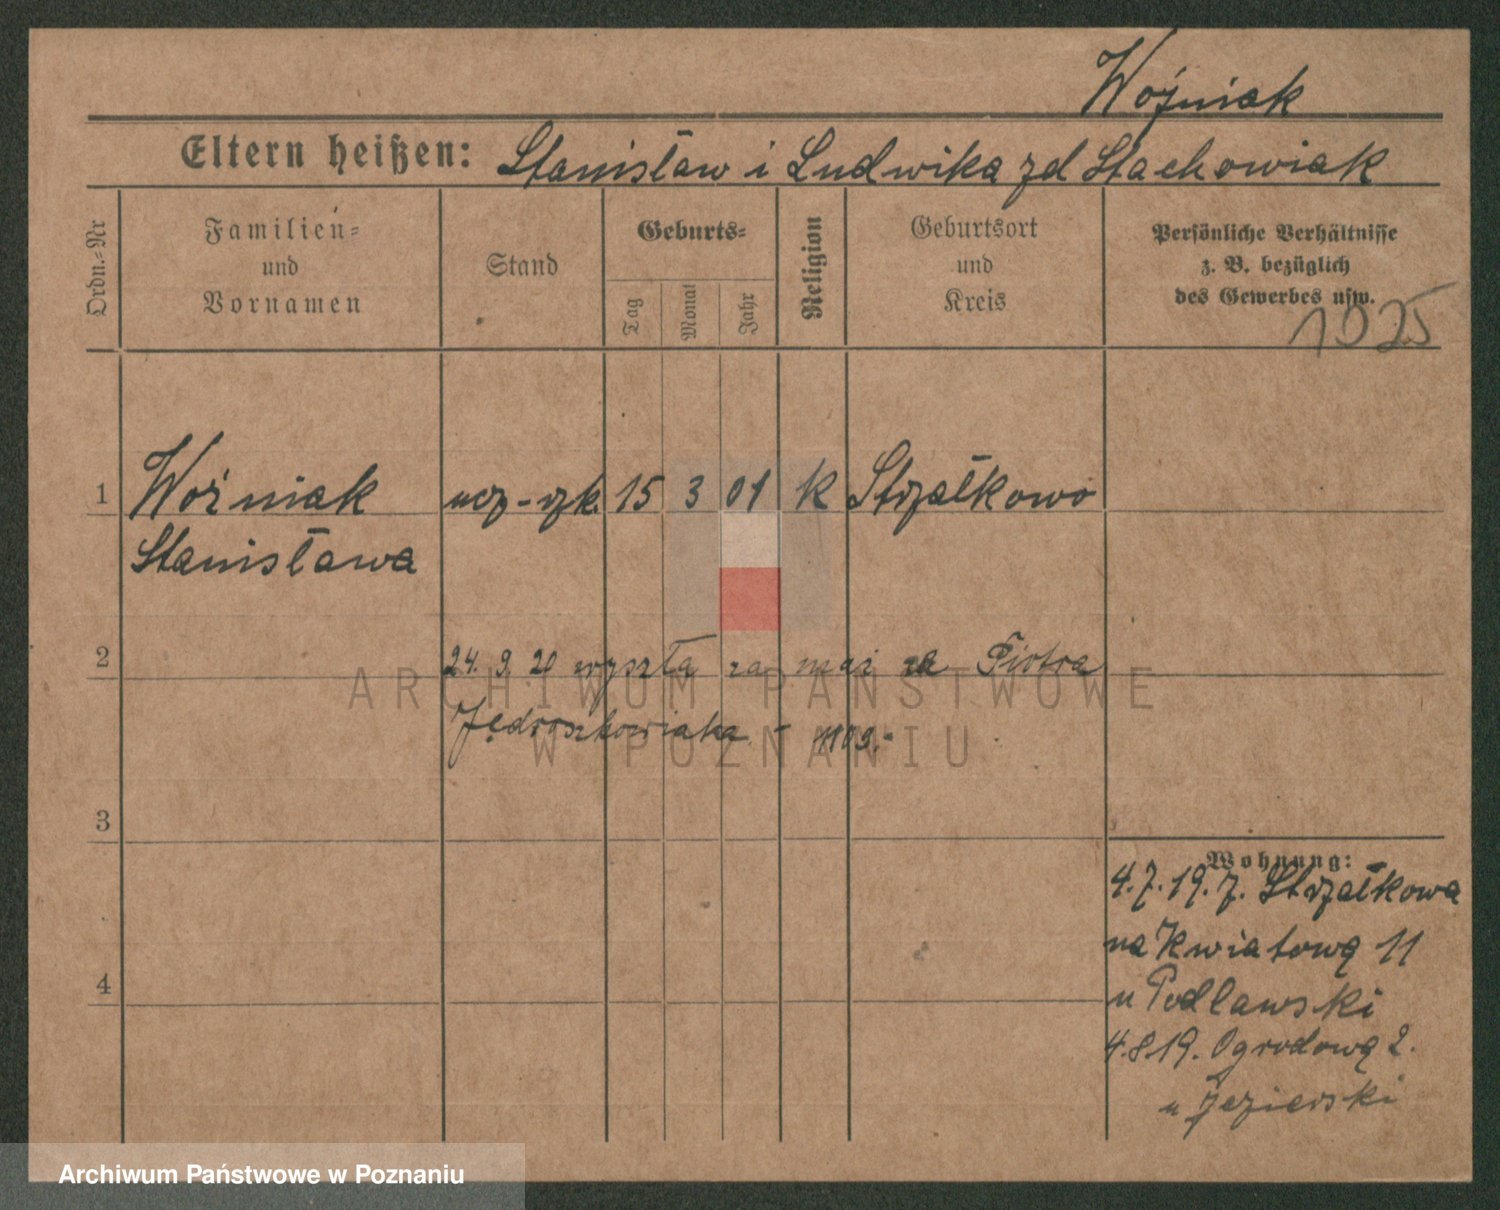 Woźniak
Eltern heißen: Stanisław i Ludwika zd Stachowiak
Ordn.=Nr
Familien=
und
Vornamen
Stand
Geburts=
Tag
Monat
Jahr
Religion
Geburtsort
und
Kreis
Persönliche Verhältnisse
z. B. bezüglich
des Gewerbes usw.
1925
1 Woźniak ucz-rzk. 15 3 01 K Strzałkowo
Stanisława
2 24. 9. 20 wyszła za mąż za Piotra
Jędroszkowiaka - 1109.-
3
Wohnung:
4.7.19. z. Strzałkowa
na Kwiatową 11
4
u Podlawski
4.8.19. Ogrodową 2.
u Jezierski
ARCHIWUM PAŃSTWOWE
W POZNANIU
Archiwum Państwowe w Poznaniu